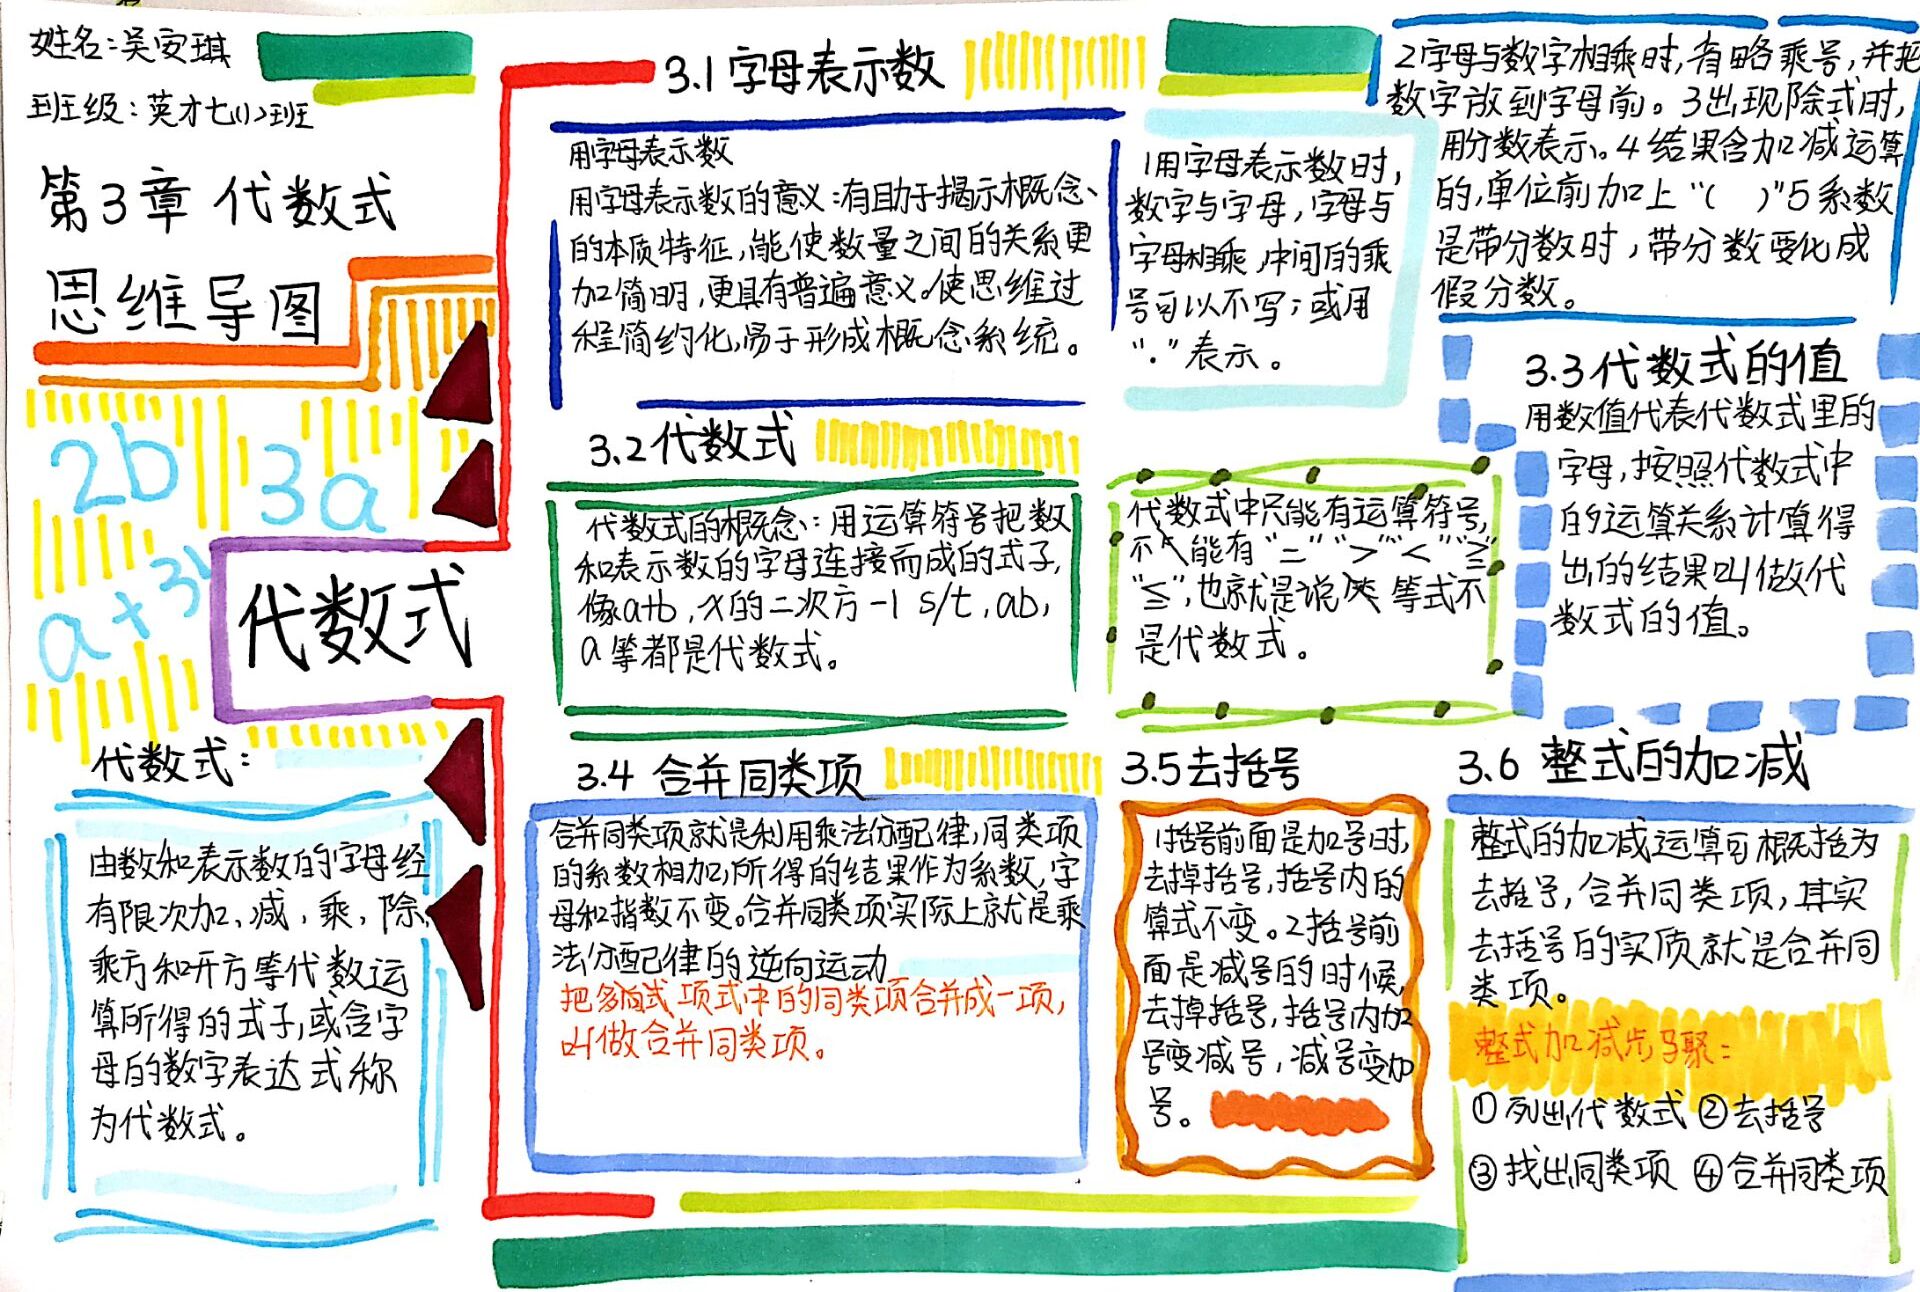 姓名:吴安琪
班级:英才七(1)班
第3章 代数式
思维导图
2b 3a
代数式
代数式:
由数和表示数的字母经
有限次加、减,乘,除、
乘方和开方等代数运
算所得的式子,或含字
母的数字表达式称
为代数式。
3.1字母表示数
用字母表示数
用字母表示数的意义:有助于揭示概念、
的本质特征,能使数量之间的关系更
加简明,更具有普遍意义。使思维过
程简约化,易于形成概念系统。
1用字母表示数时,
数字与字母,字母与
字母相乘,中间的乘
号可以不写;或用
“·”表示。
2字母与数字相乘时,省略乘号,并把
数字放到字母前。3出现除式时,
用分数表示。4结果含加减运算
的,单位前加上“( )”5系数
是带分数时,带分数要化成
假分数。
3.2代数式
代数式的概念:用运算符号把数
和表示数的字母连接而成的式子,
像a+b,x的二次方-1 s/t,ab,
a等都是代数式。
代数式中只能有运算符号,
不能有“=”“>”“<”“≥”
“≤”,也就是说 等式不
是代数式。
3.3代数式的值
用数值代表代数式里的
字母,按照代数式中
的运算关系计算得
出的结果叫做代
数式的值。
3.4 合并同类项
合并同类项就是利用乘法分配律,同类项
的系数相加,所得的结果作为系数,字
母和指数不变。合并同类项实际上就是乘
法分配律的逆向运动
把多项式中的同类项合并成一项,
叫做合并同类项。
3.5去括号
1括号前面是加号时,
去掉括号,括号内的
算式不变。2括号前
面是减号的时候,
去掉括号,括号内加
号变减号,减号变加
号。
3.6 整式的加减
整式的加减运算可概括为
去括号,合并同类项,其实
去括号的实质就是合并同
类项。
整式加减步骤:
①列出代数式 ②去括号
③找出同类项 ④合并同类项